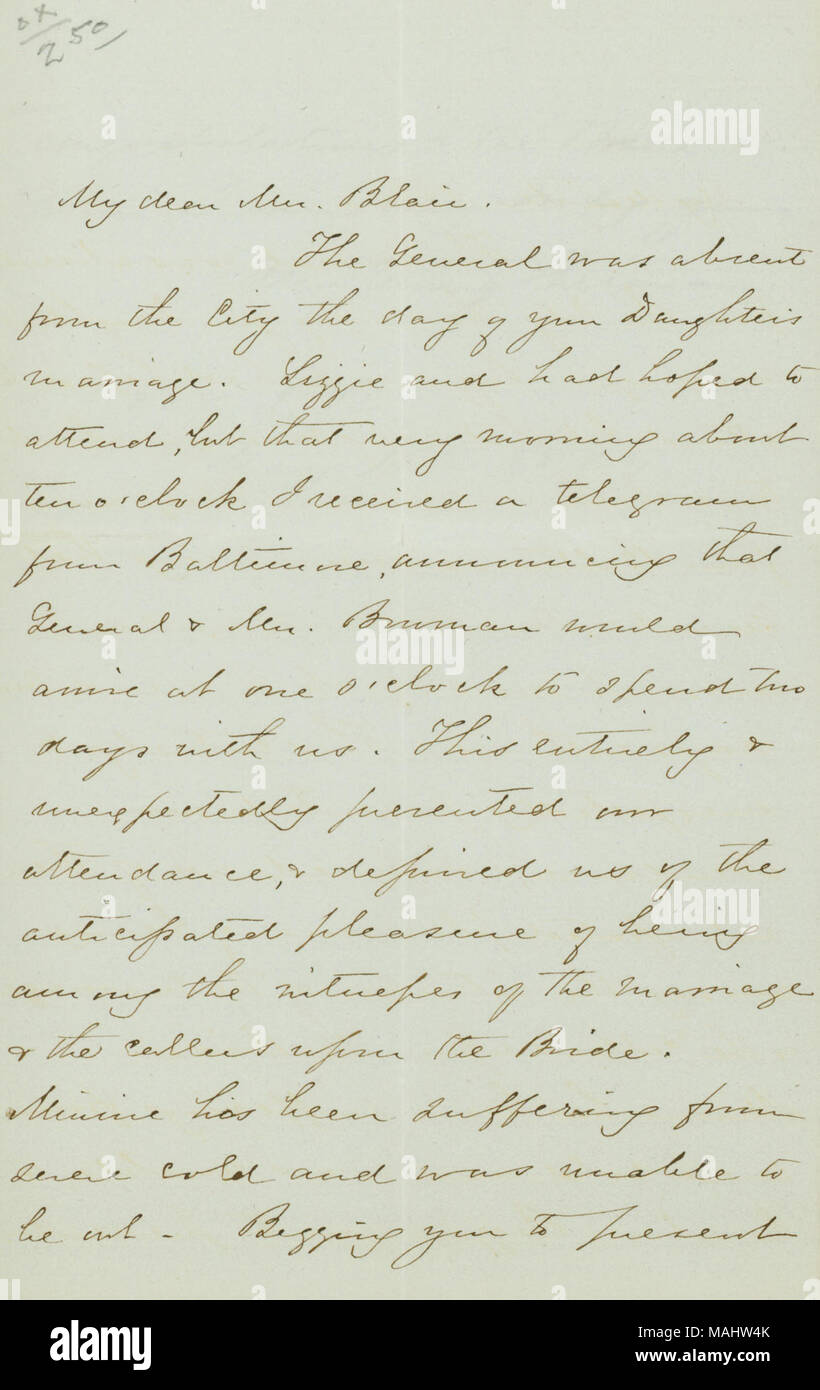 2 50/
My dear Mrs. Blair.
The General was absent
from the City the day of your Daughters
marriage. Lizzie and had hoped to
attend, but that very morning about
ten o'clock I received a telegram
from Baltimore, announcing that
General & Mrs. Bowman would
arrive at one o'clock to spend two
days with us. This entirely &
unexpectedly prevented our
attendance, & deprived us of the
anticipated pleasure of being
among the witnesses of the marriage
& the callers upon the Bride.
Minnie has been suffering from
severe cold and was unable to
be out - Begging you to present
alamy
Image ID: MAHW4K
www.alamy.com